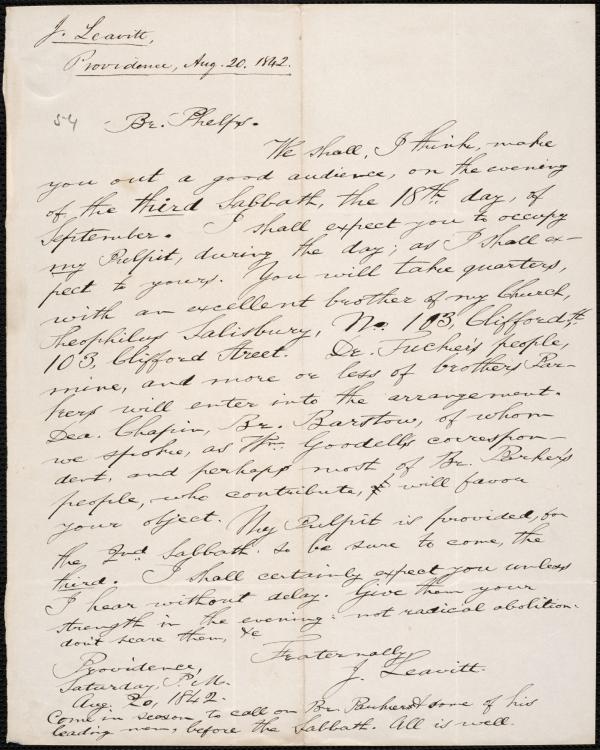 J. Leavitt,
Providence, Aug. 20. 1842.
54
Br. Phelps.
We shall, I think, make
you out a good audience, on the evening
of the third Sabbath, the 18th day, of
September. I shall expect you to occupy
my Pulpit, during the day; as I shall ex-
pect to yours. You will take quarters,
with an excellent brother of my Church,
Theophilus Salisbury, No. 103, Clifford St.
103, Clifford Street. Dr. Tucker's people,
mine, and more or less of brothers Par-
kers will enter into the arrangement.
Dea. Chapin, Br. Barstow, of whom
we spoke, as Wm. Goodell's correspon-
dent, and perhaps most of Br. Parker's
people, who contribute, will favou
your object. My Pulpit is provided, for
the 2nd Sabbath. so be sure to come, the
third. I shall certainly expect you unless
I hear without delay. Give them your
strength in the evening: not radical abolition.
don't scare them, &c
Fraternally,
J. Leavitt.
Providence,
Saturday, P.M.
Aug. 20, 1842.
Come in season to call on Br. & some of his
leading men, before the Sabbath. All is well.